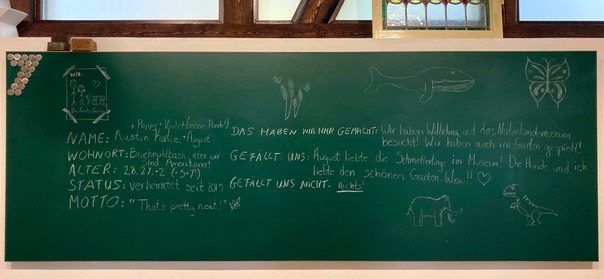 WIR:
+ Poppy + Violet (unsere Hunde!)
NAME: Austin, Katie, + August
WOHNORT: Bruchmühlbach, aber wir
sind Amerikaner!
ALTER: 28, 27, + 2 (+5+7!)
STATUS: verheiratet seit 2015
MOTTO: "That's pretty neat!"
DAS HABEN WIR HIER GEMACHT: Wir haben Wilhelma und das Naturkundemuseum
besucht! Wir haben auch im Garten gespielt!
GEFÄLLT UNS: August liebte die Schmetterlinge im Museum! Die Hunde und ich
liebte den schönen Garten. Wow!!
GEFÄLLT UNS NICHT: Nichts!